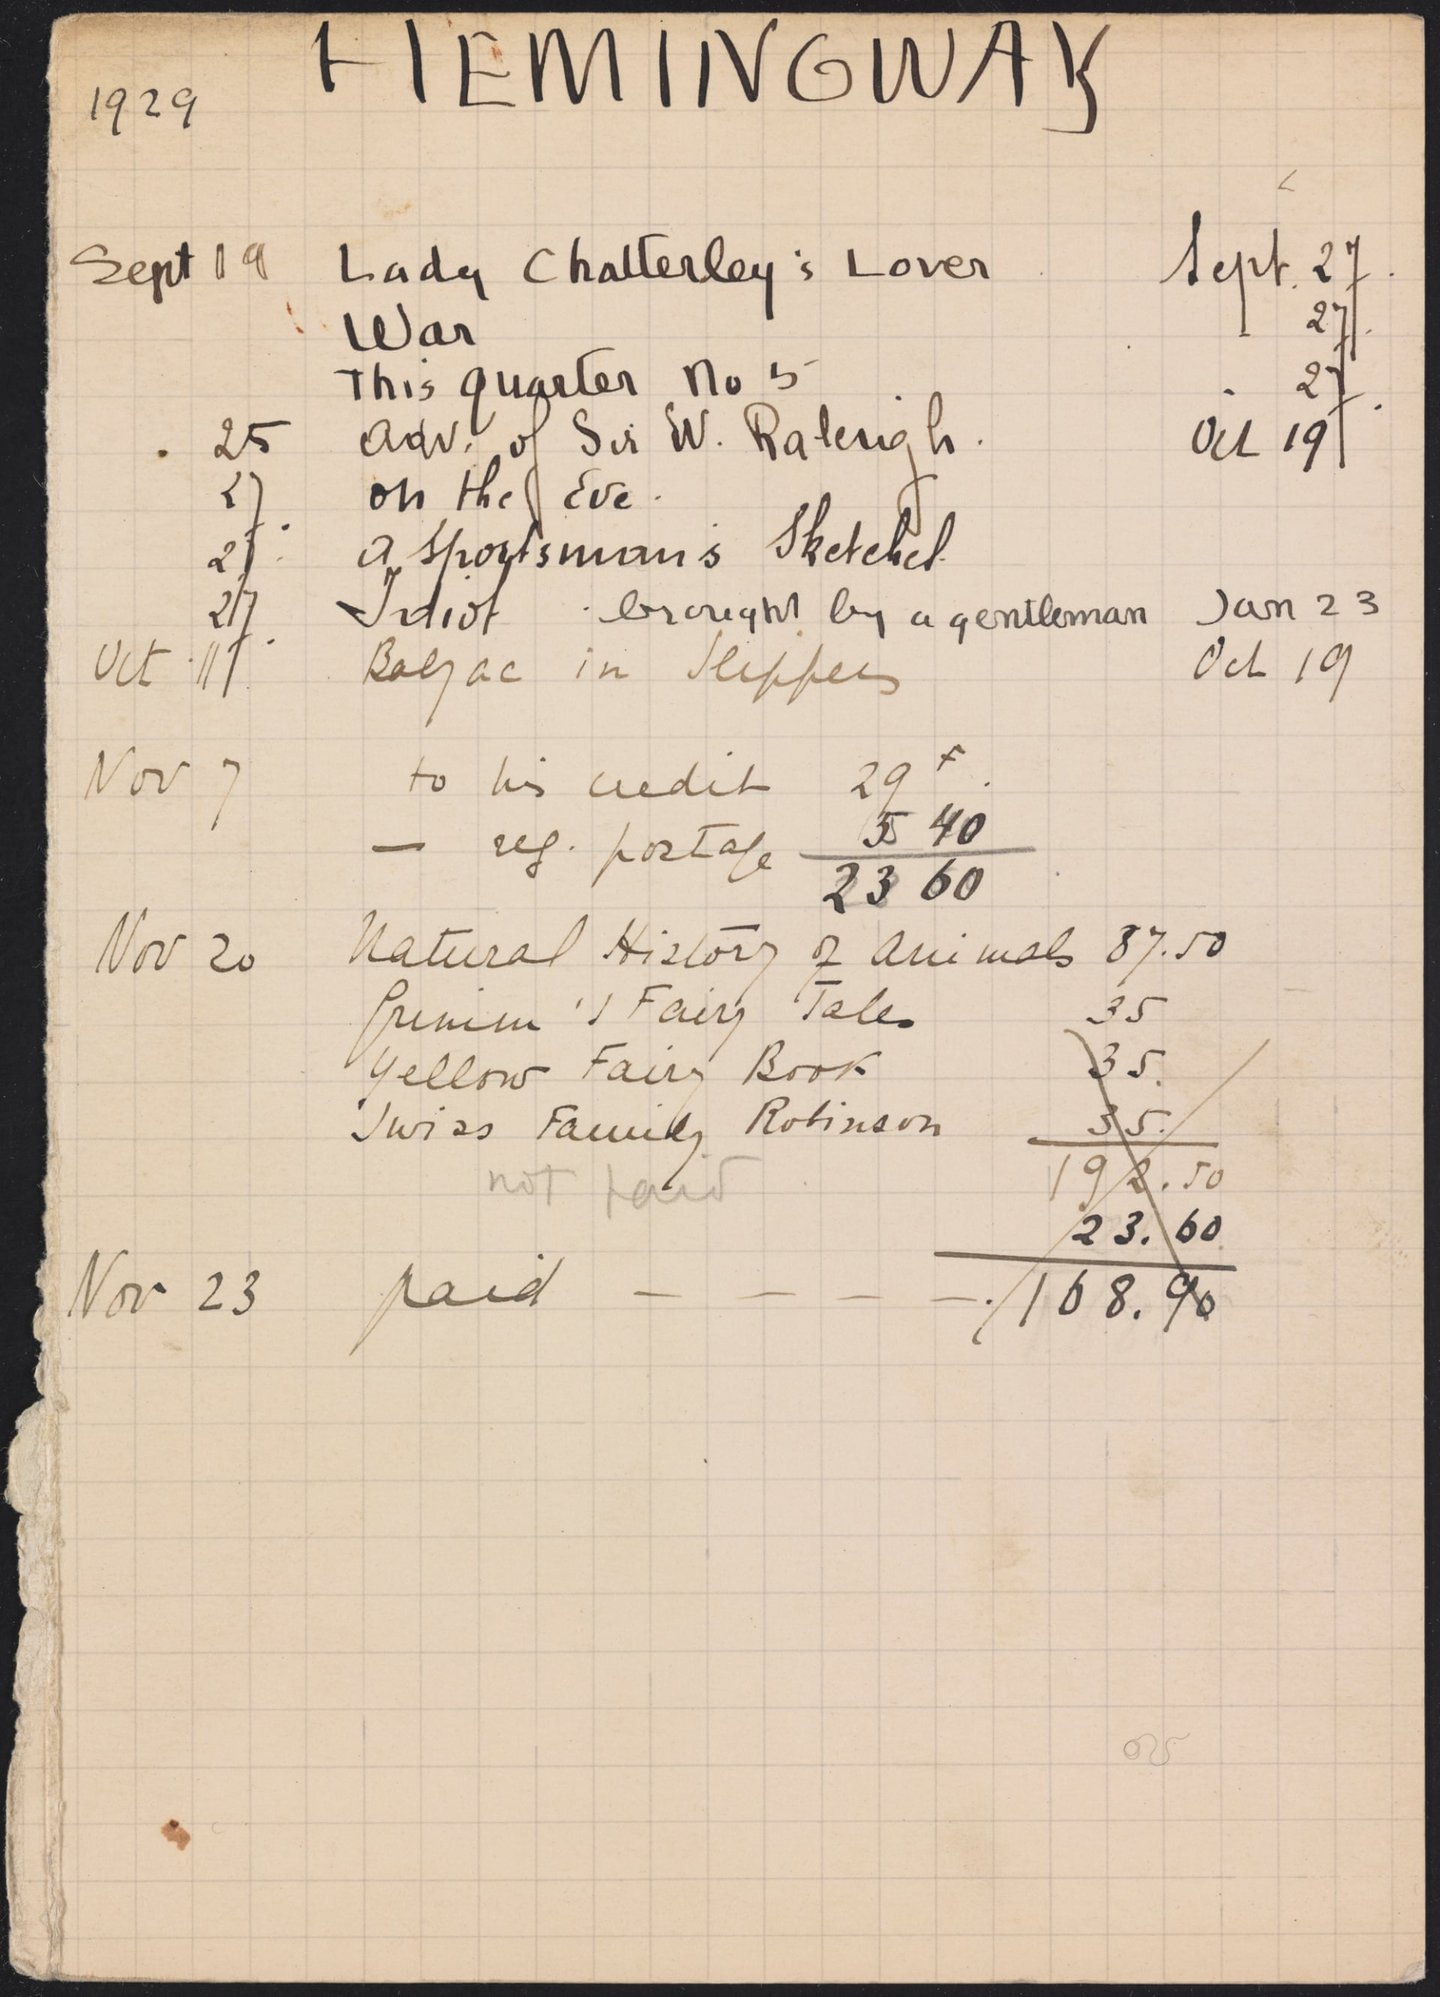 HEMINGWAY
1929
Sept 19 Lady Chatterley's Lover Sept. 27.
War 27.
This Quarter No 5 27.
25 Adv. of Sir W. Raleigh. Oct 19
27 on the Eve.
27 a Sportsman's Sketches
27 Idiot brought by a gentleman Jan 23
Oct 11 Balzac in Slippers Oct 19
Nov 7 to his credit 29 F.
— reg. postage 5 40
23 60
Nov 20 Natural History of Animals 87.50
Grimm's Fairy Tales 35
Yellow Fairy Book 35.
Swiss Family Robinson 35.
192.50
not paid
23.60
Nov 23 paid — — — — 168.90